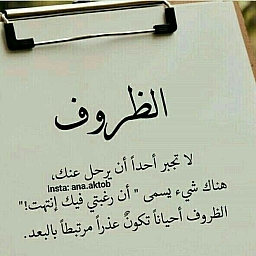 الظروف
لا تجبر أحداً أن يرحل عنك،
insta: ana.aktob
هناك شيء يسمى " أن رغبتي فيك إنتهت!"
الظروف أحياناً تكونُ عذراً مرتبطاً بالبعد.